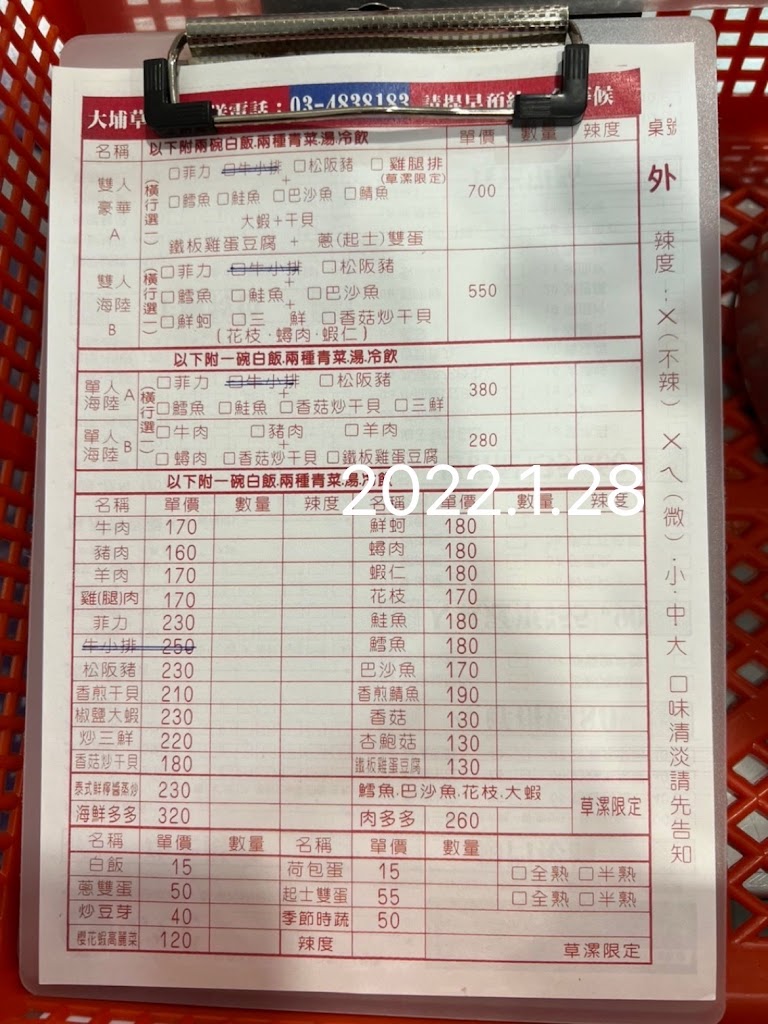 大埔 送電話：03-4838183 請提早預約 候
名稱 以下附兩碗白飯.兩種青菜.湯.冷飲 單價 數量 辣度
雙人豪華A (橫行選一) □菲力 □牛小排 □松阪豬 □雞腿排(草漯限定) 700
+
□鱈魚 □鮭魚 □巴沙魚 □鯖魚
大蝦+干貝
鐵板雞蛋豆腐 + 蔥(起士)雙蛋
雙人海陸B (橫行選一) □菲力 □牛小排 □松阪豬 550
+
□鱈魚 □鮭魚 □巴沙魚
+
□鮮蚵 □三鮮 □香菇炒干貝
(花枝.蟳肉.蝦仁)
以下附一碗白飯.兩種青菜.湯.冷飲
單人海陸A (橫行選一) □菲力 □牛小排 □松阪豬 380
+
□鱈魚 □鮭魚 □香菇炒干貝 □三鮮
單人海陸B □牛肉 □豬肉 □羊肉 280
+
□蟳肉 □香菇炒干貝 □鐵板雞蛋豆腐
以下附一碗白飯.兩種青菜.湯.冷飲
2022.1.28
名稱 單價 數量 辣度 名稱 單價 數量 辣度
牛肉 170 鮮蚵 180
豬肉 160 蟳肉 180
羊肉 170 蝦仁 180
雞(腿)肉 170 花枝 170
菲力 230 鮭魚 180
牛小排 250 鱈魚 180
松阪豬 230 巴沙魚 170
香煎干貝 210 香煎鯖魚 190
椒鹽大蝦 230 香菇 130
炒三鮮 220 杏鮑菇 130
香菇炒干貝 180 鐵板雞蛋豆腐 130
泰式鮮檸醬蒸炒 230 鱈魚.巴沙魚.花枝.大蝦 草漯限定
海鮮多多 320 肉多多 260
名稱 單價 數量 名稱 單價 數量
白飯 15 荷包蛋 15 □全熟 □半熟
蔥雙蛋 50 起士雙蛋 55 □全熟 □半熟
炒豆芽 40 季節時蔬 50
櫻花蝦高麗菜 120 辣度 草漯限定
桌號
外
辣度：X(不辣) ㄨㄟ(微).小.中.大 口味清淡請先告知